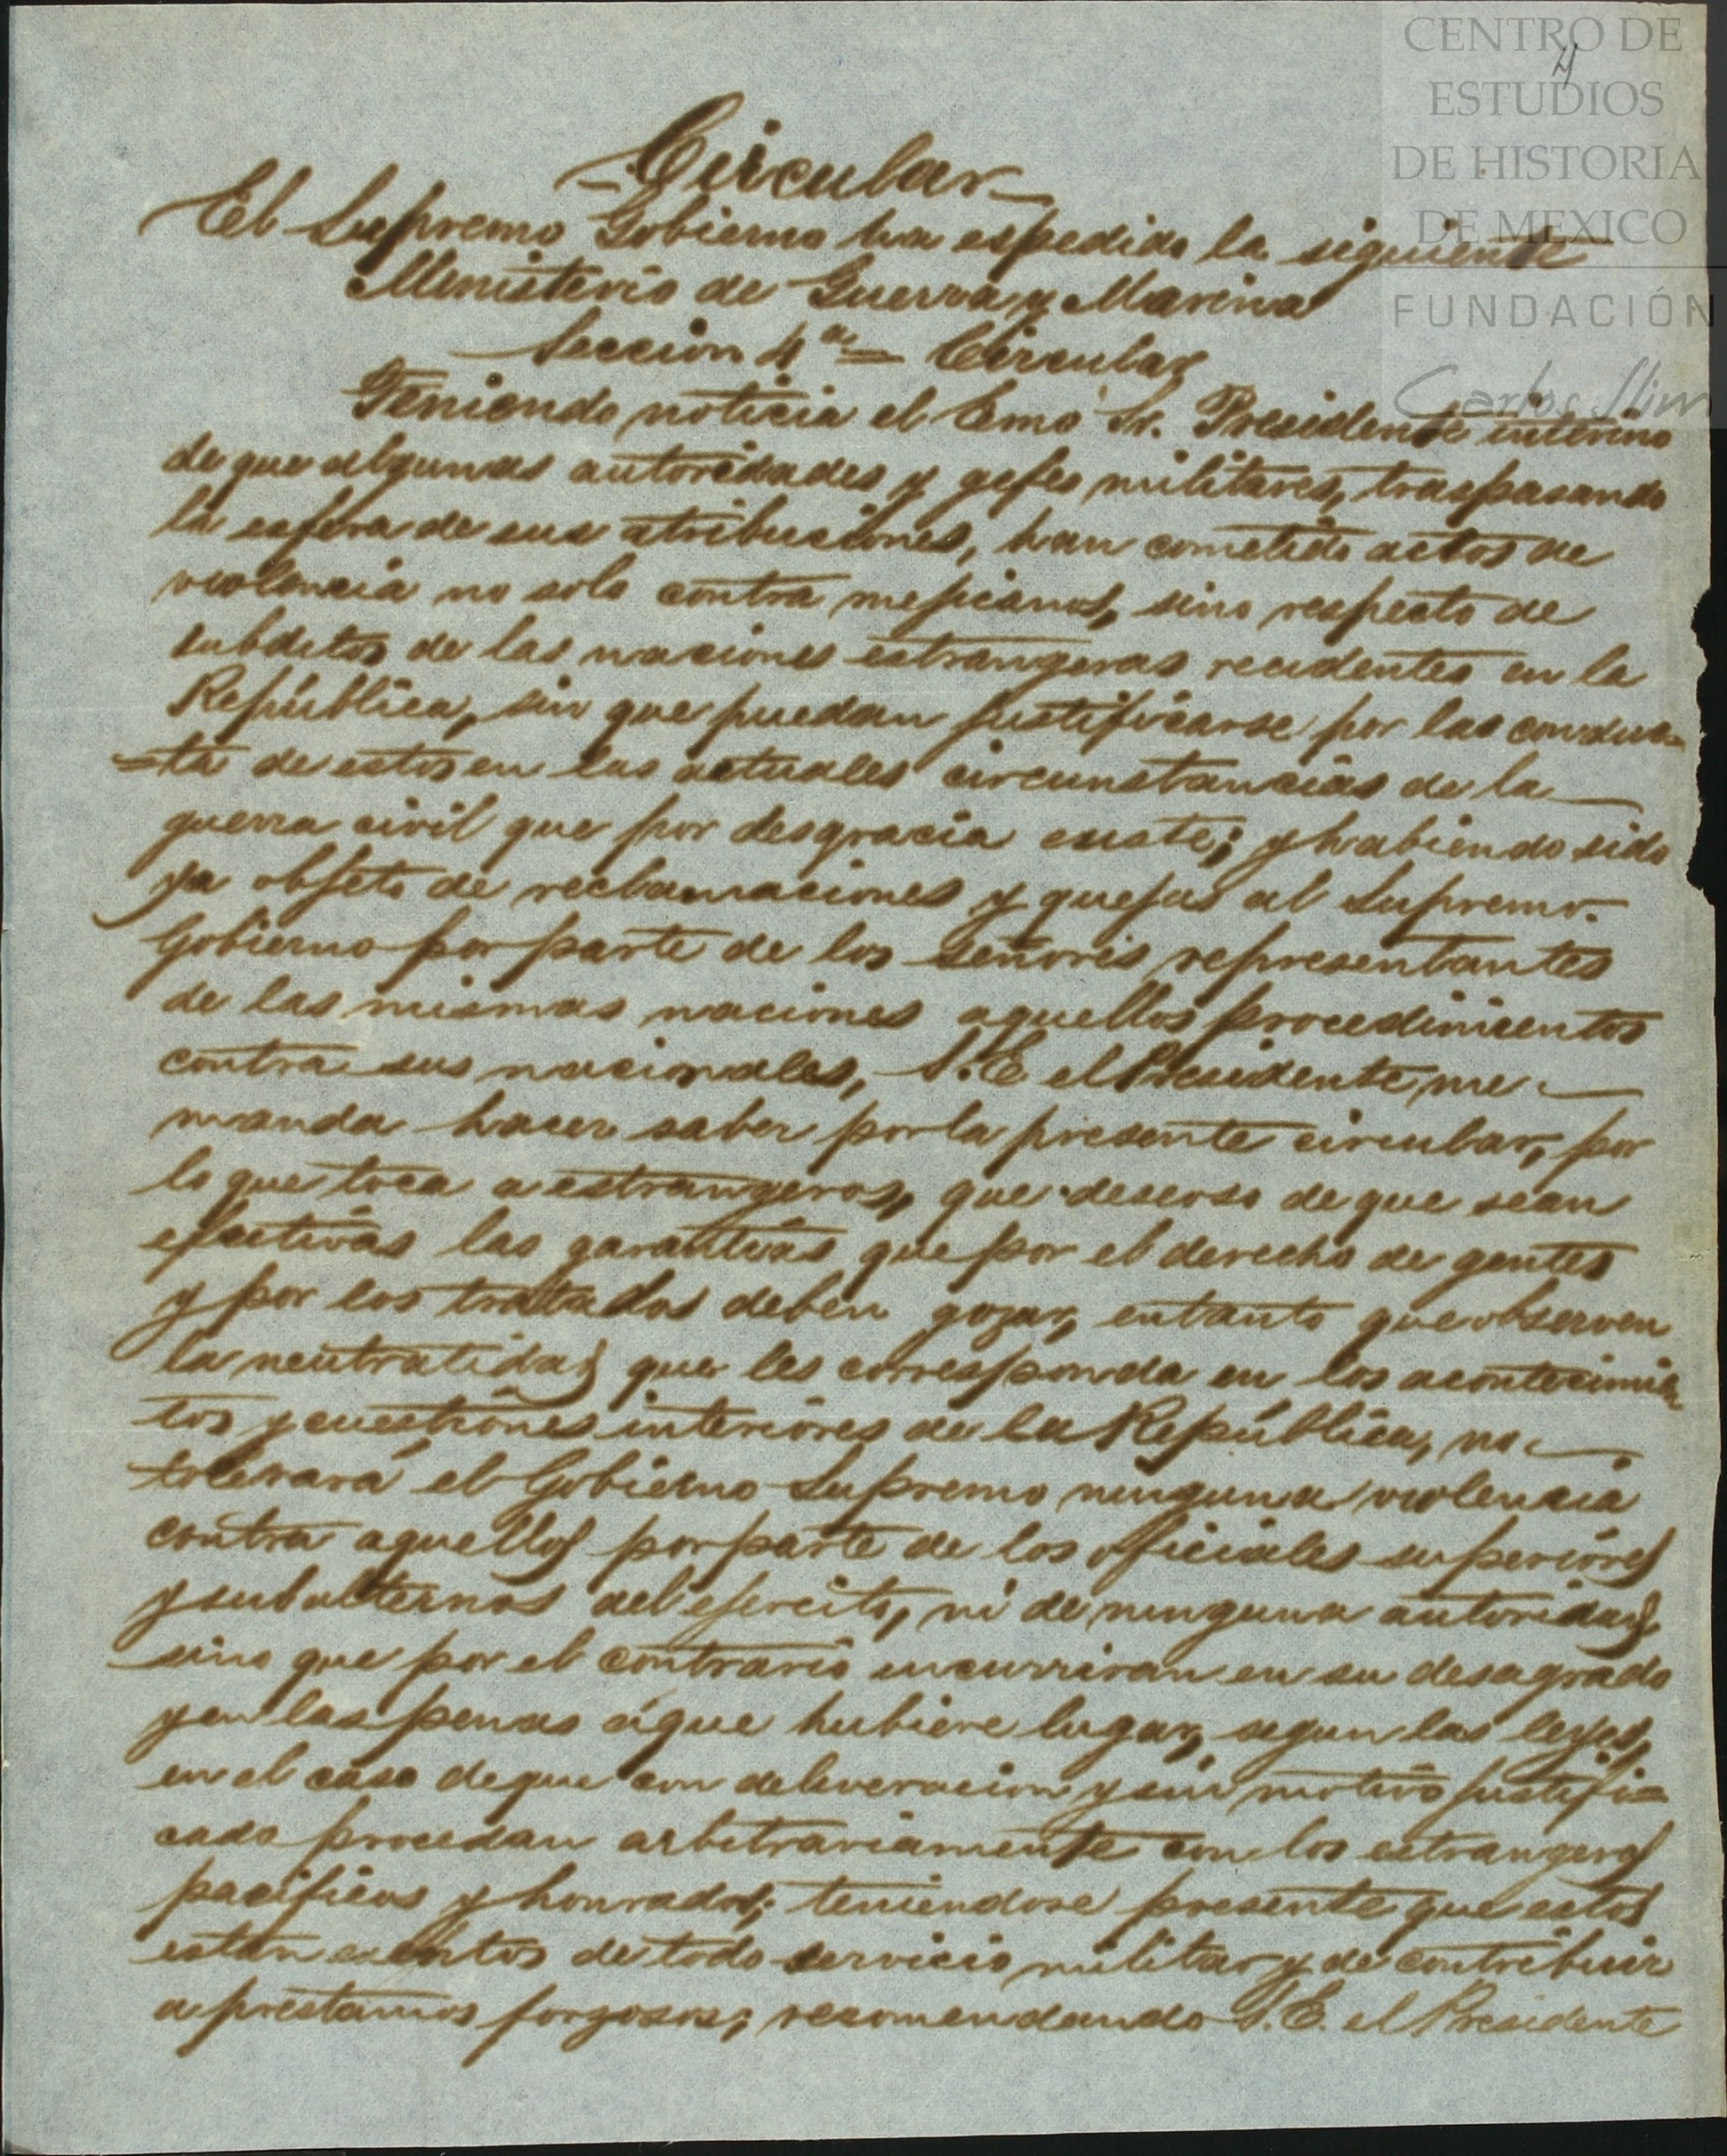 CENTRO DE
ESTUDIOS
DE HISTORIA
DE MEXICO
FUNDACIÓN
Carlos Slim
4
-Circular-
El Supremo Gobierno ha espedido la siguiente
Menisterio de Guerra y Marina
Seccion 4ª = Circular
Teniendo noticia el Ecmo Sr. Presidente interino
de que algunas autoridades y gefes militares, traspasando
la esfera de sus atribuciones, han cometido actos de
violencia no solo contra mejicanos, sino respecto de
subditos de las naciones estrangeras recidentes en la
República, sin que puedan justificarse por las conduc-
=ta de estos en las actuales circunstancias de la
guerra civil que por desgracia existe; y habiendo sido
ya objeto de reclamaciones y quejas al Supremo.
Gobierno por parte de los señores representantes
de las mismas naciones aquellos procedimientos
contra sus nacionales, S.E el Presidente me
manda hacer saber por la presente circular, por
lo que toca a estrangeros, que deseoso de que sean
efectivas las garantias que por el derecho de gentes
y por los tratados deben gozar, entanto que observen
la neutralidad que les corresponda en los acontecimien
tos y cuestiones interiores de la República, no
tolerará el Gobierno Supremo ninguna violencia
contra aquellos por parte de los oficiales superiores
y subalternos del ejercito, ni de ninguna autoridad,
sino que por el contrario incurriran en su desagrado
y en las penas á que hubiere lugar, segun las leyes,
en el caso de que con deleveracion y sin motivo justifi=
cado procedan arbitrariamente con los estrangeros
pacificos y honrados; teniendose presente que estos
estan exentos de todo servicio militar y de contribuir
a prestamos forzosos; recomendando S.E. el Presidente